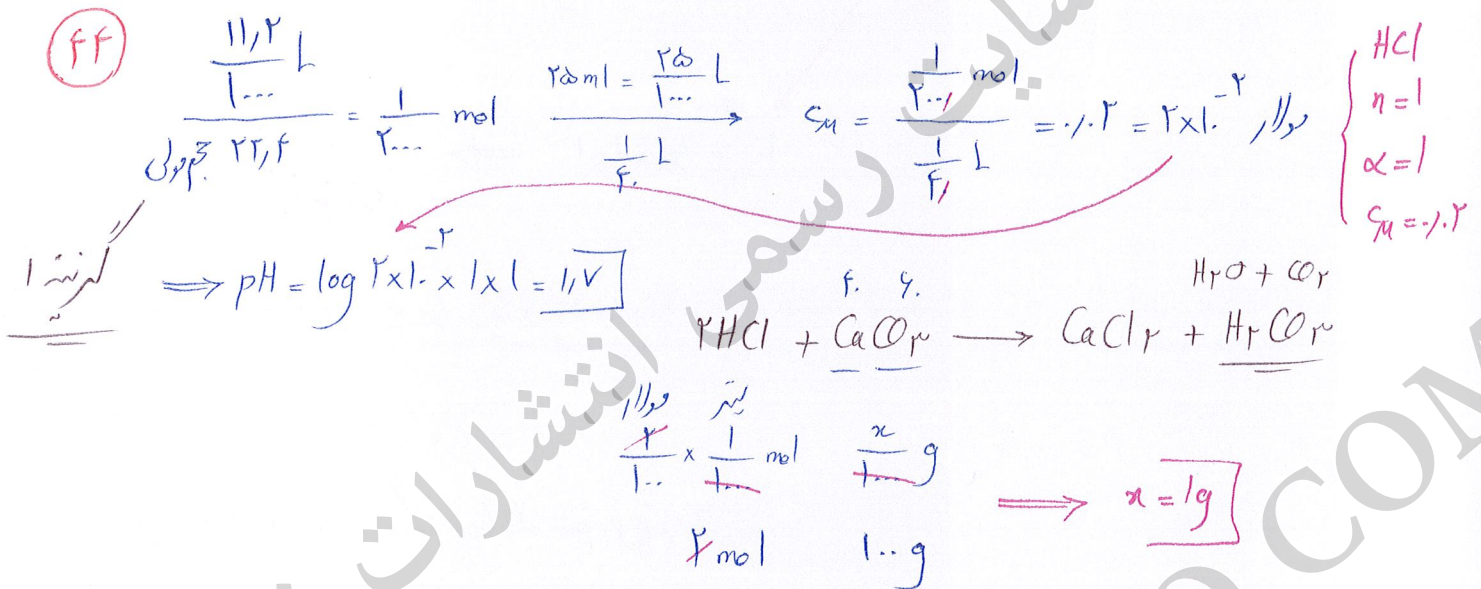 ۴۴
۱۱,۲ / ۱۰۰۰ L / ۲۲,۴ حجم مولی = ۱ / ۲۰۰۰ mol ۲۵ ml = ۲۵ / ۱۰۰۰ L ۱ / ۴۰ L → C_M = ۱ / ۲۰۰۰ mol / ۱ / ۴۰ L = ۰/۰۲ = ۲×۱۰^-۲ مولار
HCl
n = 1
α = 1
C_M = ۰/۰۲
گزینه ۱ ⟹ pH = log ۲×۱۰^-۲ × ۱ × ۱ = ۱,۷
H۲O + CO۲
۴۰ ۶۰
۲HCl + CaCO۳ ⟶ CaCl۲ + H۲CO۳
مولار لیتر
۲ / ۱۰۰ × ۱ / ۱۰۰۰ mol x / ۱۰۰۰ g
⟹ x = 1g
۲ mol ۱۰۰ g
سایت رسمی انتشارات
COM